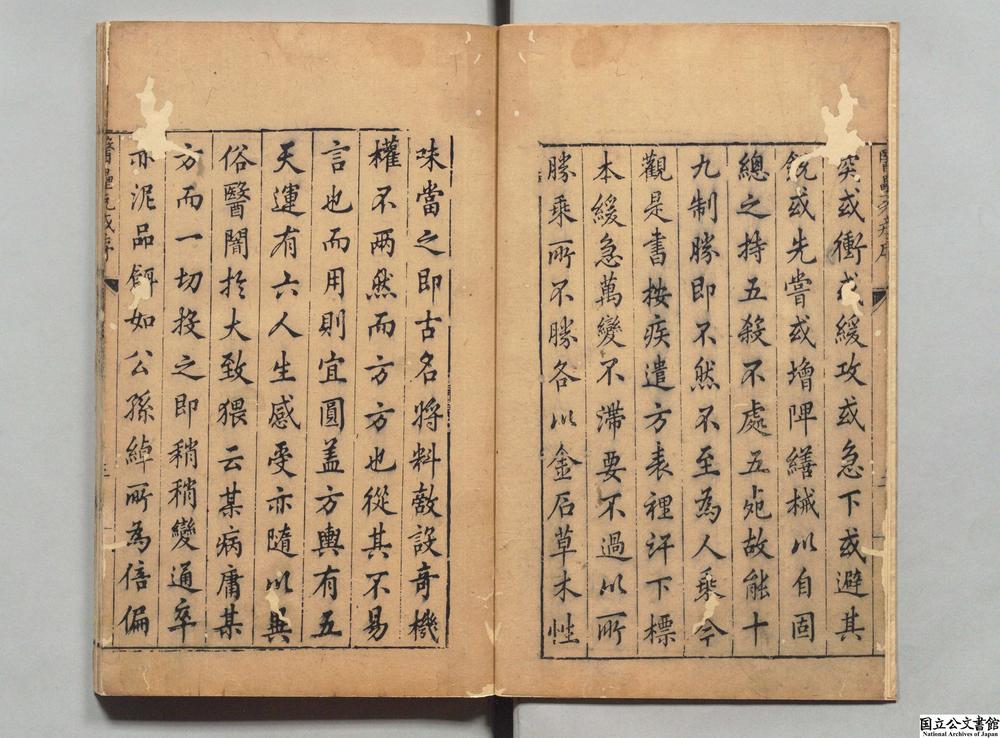 突或衝或緩攻或急下或避其
銳或先嘗或增陴繕械以自固
總之持五殺不處五宛故能十
九制勝即不然不至為人乘今
觀是書按疾遣方表裡汗下標
本緩急萬變不滯要不過以所
勝乘所不勝各以金石草木性
味當之即古名將料敵設奇機
權不兩然而方方也從其不易
言也而用則宜圓盖方輿有五
天運有六人生感受亦隨以異
俗醫闇於大致猥云某病庸某
方而一切投之即稍稍變通卒
亦泥品餌如公孫綽所為倍偏
醫壘元戎序
国立公文書館
National Archives of Japan